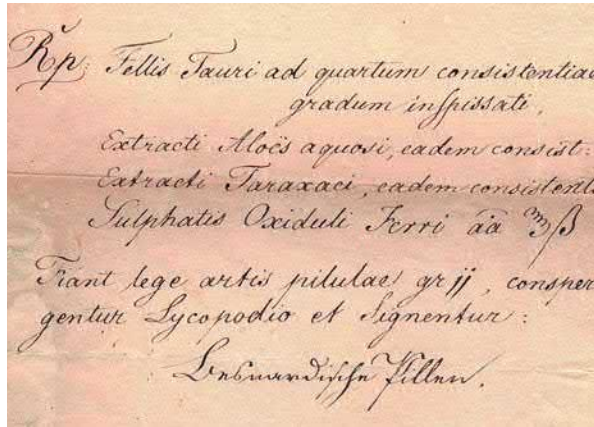 Rp. Fellis Tauri ad quartum consistentiae
gradum inspissati,
Extracti Aloës aquosi, eadem consist:
Extracti Taraxaci, eadem consistenti
Sulphatis Oxiduli Ferri āā ℥ß
Fiant lege artis pilulae gr jj, consper
gentur Lycopodio et Signentur:
Besnardische Pillen.